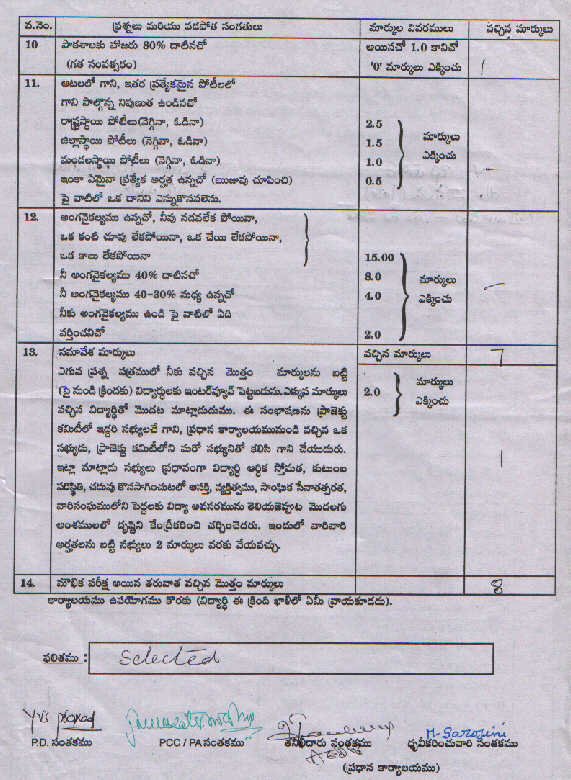 వ.నెం. ప్రశ్నలు మరియు వడపోత సంగతులు మార్కుల వివరములు వచ్చిన మార్కులు
10 పాఠశాలకు హాజరు 80% దాటినచో అయినచో 1.0 కానిచో
(గత సంవత్సరం) '0' మార్కులు ఎక్కించు
11. ఆటలలో గాని, ఇతర ప్రత్యేకమైన పోటీలలో
గాని పాల్గొన్న నిపుణుత ఉండినచో
రాష్ట్రస్థాయి పోటీలు(నెగ్గినా, ఓడినా) 2.5 మార్కులు
జిల్లాస్థాయి పోటీలు (నెగ్గినా, ఓడినా) 1.5 ఎక్కించు
మండలస్థాయి పోటీలు (నెగ్గినా, ఓడినా) 1.0
ఇంకా ఏమైనా ప్రత్యేక అర్హత ఉన్నచో (ఋజువు చూపించి) 0.5
పై వాటిలో ఒక దానిని ఎన్నుకొనవలెను.
12. అంగవైకల్యము ఉన్నచో, నీవు నడవలేక పోయినా,
ఒక కంటి చూపు లేకపోయినా, ఒక చేయి లేకపోయినా,
ఒక కాలు లేకపోయినా 15.00
నీ అంగవైకల్యము 40% దాటినచో 8.0 మార్కులు
నీ అంగవైకల్యము 40-30% మధ్య ఉన్నచో 4.0 ఎక్కించు
నీకు అంగవైకల్యము ఉండి పై వాటిలో ఏది
వర్తించనిచో 2.0
13. సమావేశ మార్కులు వచ్చిన మార్కులు 7
ఎగువ ప్రశ్న పత్రములో నీకు వచ్చిన మొత్తం మార్కులను బట్టి 2.0 మార్కులు
(పై నుండి క్రిందకు) విద్యార్థులకు ఇంటర్వ్యూకై పెట్టబడును.ఎక్కువ మార్కులు ఎక్కించు
వచ్చిన విద్యార్థితో మొదట మాట్లాడుదుము. ఈ సంభాషణను ప్రాజెక్టు
కమిటీలో ఇద్దరి సభ్యులచే గాని, ప్రధాన కార్యాలయమునుండి వచ్చిన ఒక
సభ్యుడు, ప్రాజెక్టు కమిటీలోని మరో సభ్యునితో కలిసి గాని చేయుదురు.
ఇట్లా మాట్లాడు సభ్యులు ప్రధానంగా విద్యార్థి ఆర్థిక స్తోమత, కుటుంబ
పరిస్థితి, చదువు కొనసాగించుటలో ఆసక్తి, వ్యక్తిత్వము, సాంఘిక సేవాతత్పరత,
వారిసంఘములోని పెద్దలకు విద్యా అవసరమును తెలియజెప్పుట మొదలగు
అంశములలో దృష్టిని కేంద్రీకరించి చర్చించెదరు. ఇందులో వారివారి
అర్హతలను బట్టి సభ్యులు 2 మార్కులు వరకు వేయవచ్చు. 1
14. మౌఖిక పరీక్ష అయిన తరువాత వచ్చిన మొత్తం మార్కులు 8
కార్యాలయము ఉపయోగము కొరకు (విద్యార్థి ఈ క్రింది ఖాళీలో ఏమీ వ్రాయకూడదు).
ఫలితము : Selected
M. Sarojini
P.D. సంతకము PCC / PA సంతకము తనిఖీదారు సంతకము ధృవీకరించువారి సంతకము
(ప్రధాన కార్యాలయము)